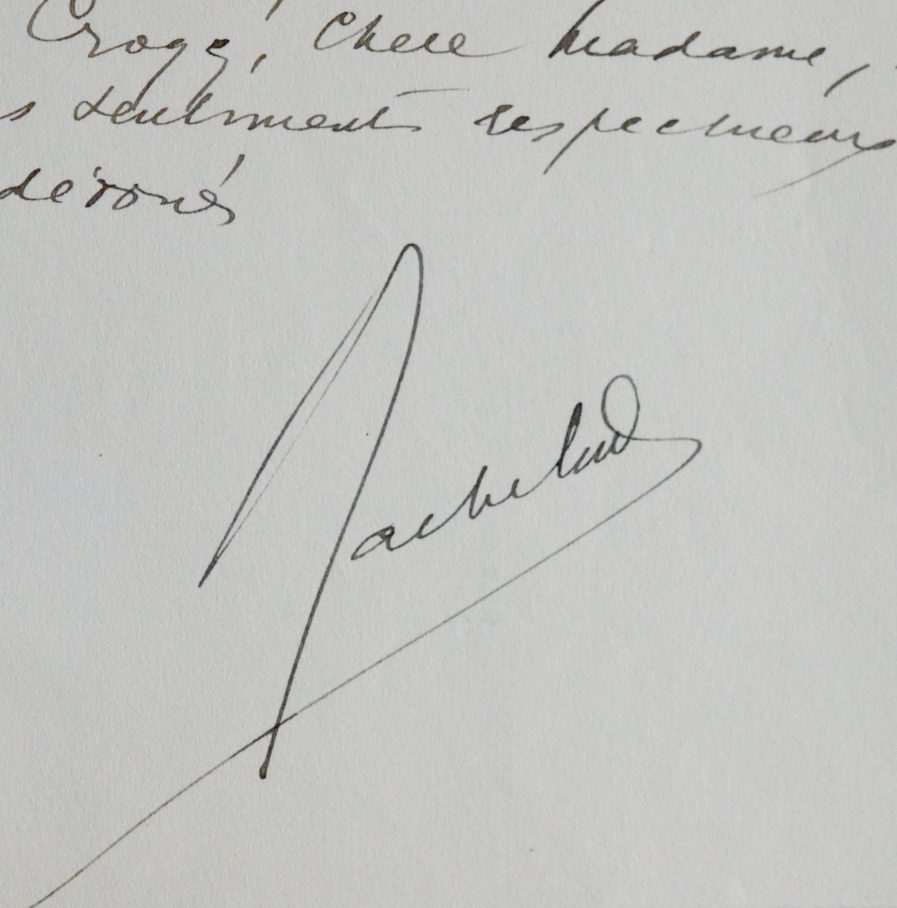 Croyez, Chere Madame,
s sentiments respectueux
dévoués